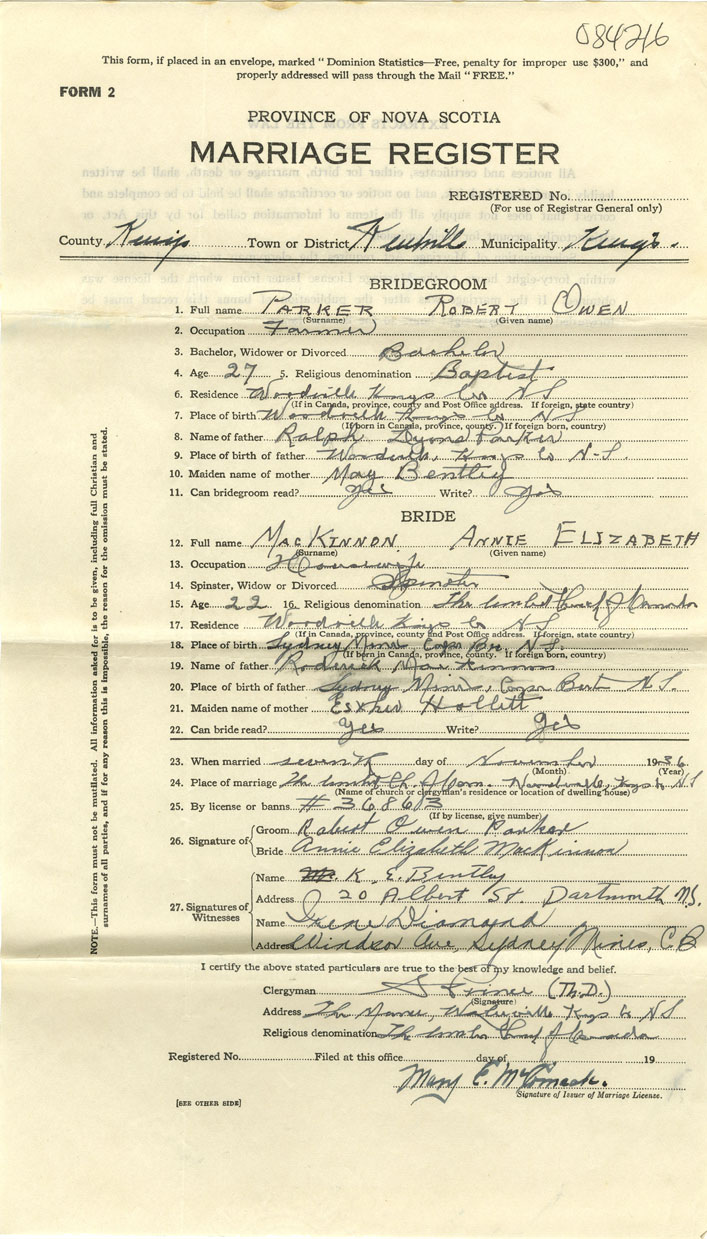 084216
This form, if placed in an envelope, marked “ Dominion Statistics—Free, penalty for improper use $300,” and
properly addressed will pass through the Mail “ FREE.”
FORM 2
PROVINCE OF NOVA SCOTIA
MARRIAGE REGISTER
REGISTERED No.
(For use of Registrar General only)
County Kings Town or District Municipality Kings.
BRIDEGROOM
1. Full name PARKER ROBERT OWEN
(Surname) (Given name)
2. Occupation Farmer
3. Bachelor, Widower or Divorced Bachelor
4. Age 27 5. Religious denomination Baptist
6. Residence Woodville Kings Co NS
(If in Canada, province, county and Post Office address. If foreign, state country)
7. Place of birth Woodville Kings Co NS
(If born in Canada, province, county. If foreign born, country)
8. Name of father Ralph Lyons Parker
9. Place of birth of father Woodville, Kings Co N-S.
10. Maiden name of mother May Bentley
11. Can bridegroom read? yes Write? yes
BRIDE
12. Full name MACKINNON ANNIE ELIZABETH
(Surname) (Given name)
13. Occupation Housewife
14. Spinster, Widow or Divorced Spinster
15. Age 22 16. Religious denomination The United Church of Canada
17. Residence Woodville Kings Co NS
(If in Canada, province, county and Post Office address. If foreign, state country)
18. Place of birth Sydney Mines, Cape Bre. NS.
(If born in Canada, province, county. If foreign born, country)
19. Name of father Roderick MacKinnon
20. Place of birth of father Sydney Mines, Cape Bret N.S.
21. Maiden name of mother Esther Hollett
22. Can bride read? yes Write? yes
23. When married seventh day of November 1936
(Month) (Year)
24. Place of marriage The United Ch. of Can. Kings Co NS
(Name of church or clergyman's residence or location of dwelling house)
25. By license or banns # 36863
(If by license, give number)
26. Signature of
Groom Robert Owen Parker
Bride Annie Elizabeth MacKinnon
27. Signatures of Witnesses
Name K. E. Bentley
Address 20 Albert St. Dartmouth N.S.
Name Irene Diamond
Address Windsor Ave, Sydney Mines, C.B
I certify the above stated particulars are true to the best of my knowledge and belief.
Clergyman (Th.D.)
(Signature)
Address The Manse, Waterville Kings Co NS
Religious denomination The United Church of Canada
Registered No. Filed at this office day of 19
Mary E. McCormack.
Signature of Issuer of Marriage License.
[SEE OTHER SIDE]
NOTE.—This form must not be mutilated. All information asked for is to be given, including full Christian and
surnames of all parties, and if for any reason this is impossible, the reason for the omission must be stated.